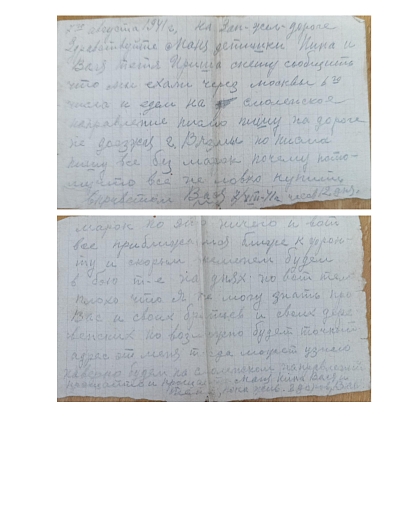 7го августа 1941 г. на Зап-жел-дороге
Здравствуйте Маня детишки Нина и
Валя тетя Ириша спешу сообщить
что мы ехали через москву 6го
числа и едем на смоленское
направление письмо пишу на дороге
не доезжая г. Вязьмы но письма
пишу все без марок почему пото-
мучто все не ловко купить
марок но это ничего и вот
все приближаемся ближе к фрон-
ту и скорым временем будем
в бою т-е на днях но вот толь
плохо что я не могу знать про
Вас и своих братьев и своих дере
венских но возможно будет точный
адрес от меня тогда может узнаю
наверно будем на смоленском направлении